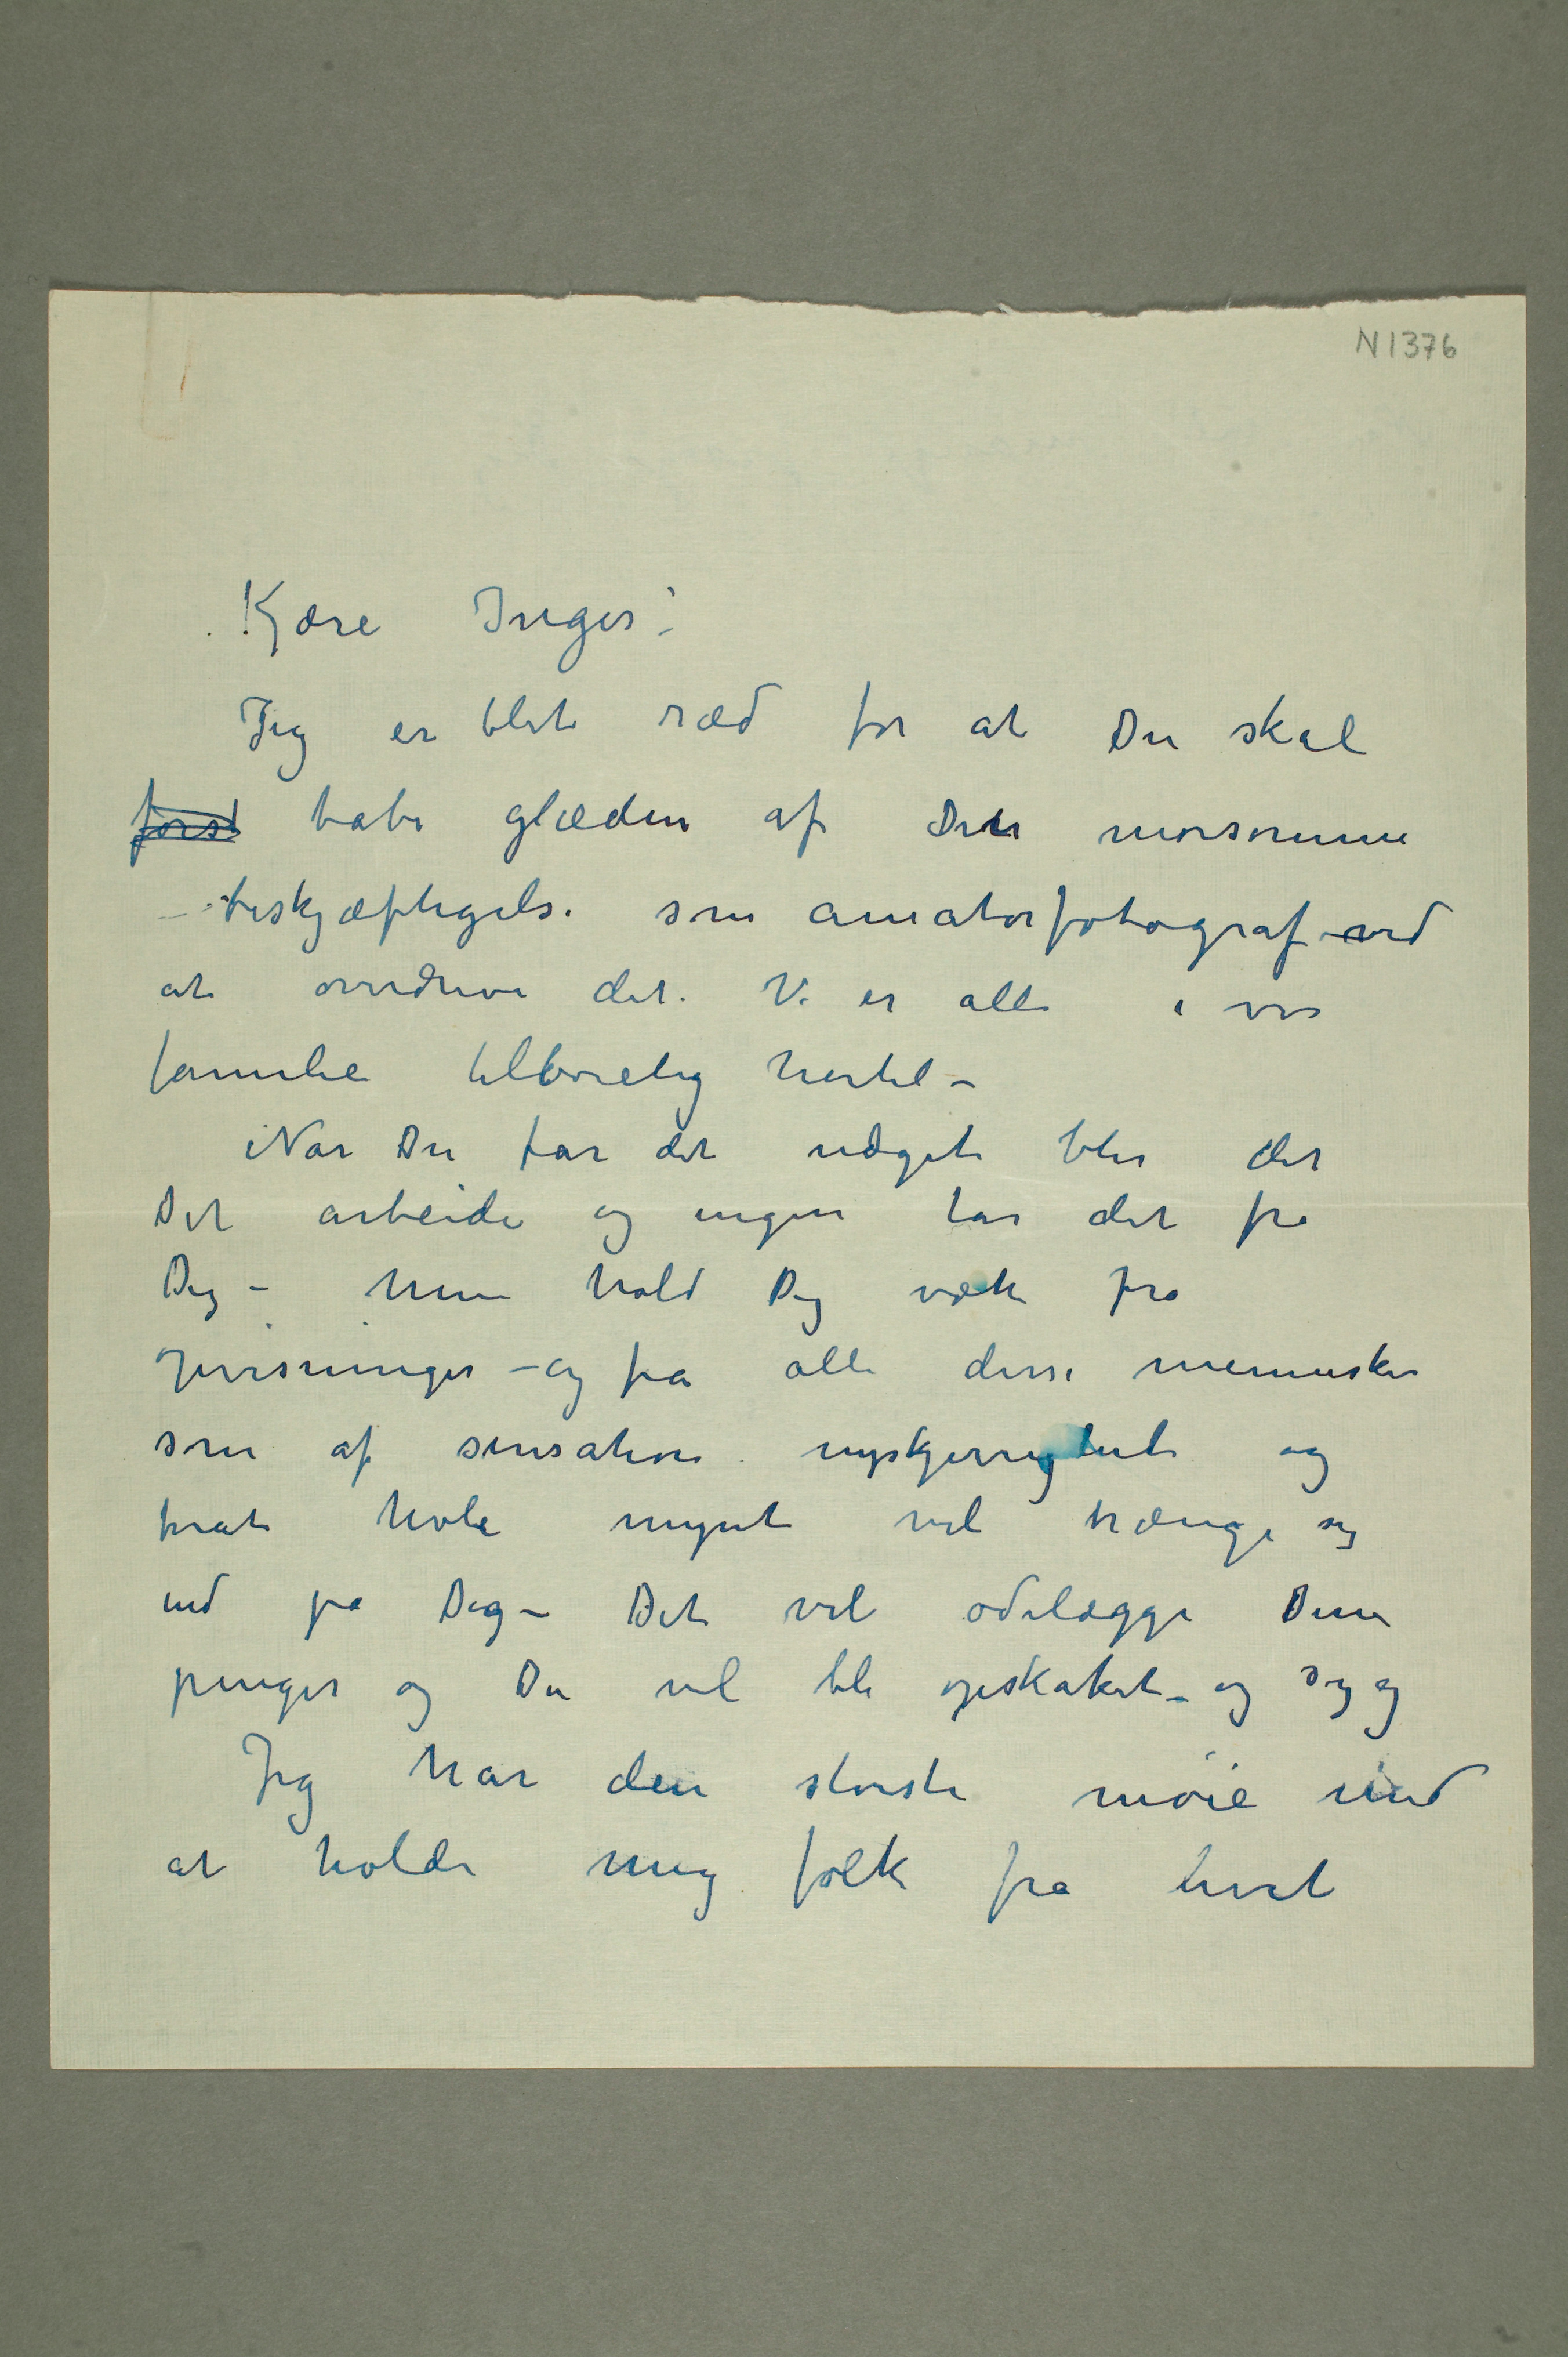 N 1376
Kjære Inger!
Jeg er blet ræd for at Du skal
først tabe glæden af Din morsomme
beskjæftigelse som amatørfotograf – ved
at overdrive det. Vi er alle i vor
familie tilbøielig hertil –
Når Du får det udgit blir det
Dit arbeide og ingen tar det fra
Dig – Men hold Dig væk fra
opvisninger – og fra alle disse mennesker
som af sensation nyskjerrighed og
forat hole mynt vil trænge sig
ind på Dig – Det vil ødelægge Dine
penger og Du vil bli opskaket – og syg
Jeg har den største møie med
at holde mig folk fra livet